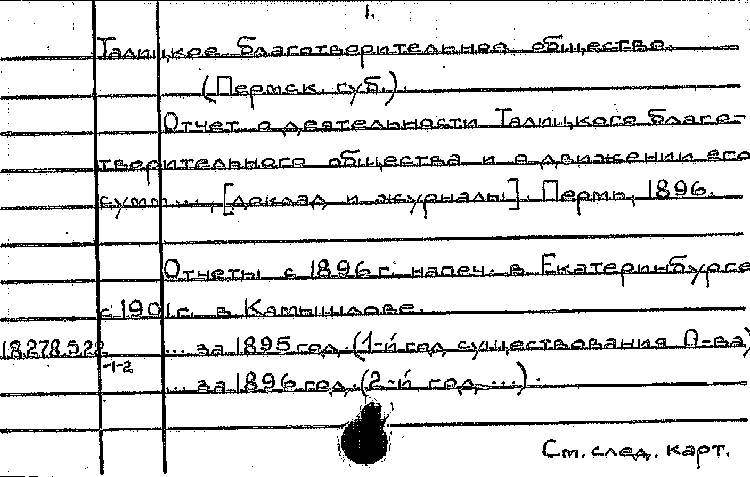 1.
Талицкое благотворительное общество.
(Пермск. губ.).
Отчет о деятельности Талицкого благо-
творительного общества и о движении его
сумм ..., [доклад и журналы]. Пермь, 1896.
Отчеты с 1896 г. напеч. в Екатеринбурге
с 1901 г. в Камышлове.
18.278.5.22 ... за 1895 год. (1-й год существования О-ва)
1-2
... за 1896 год. (2-й год ...).
См. след. карт.